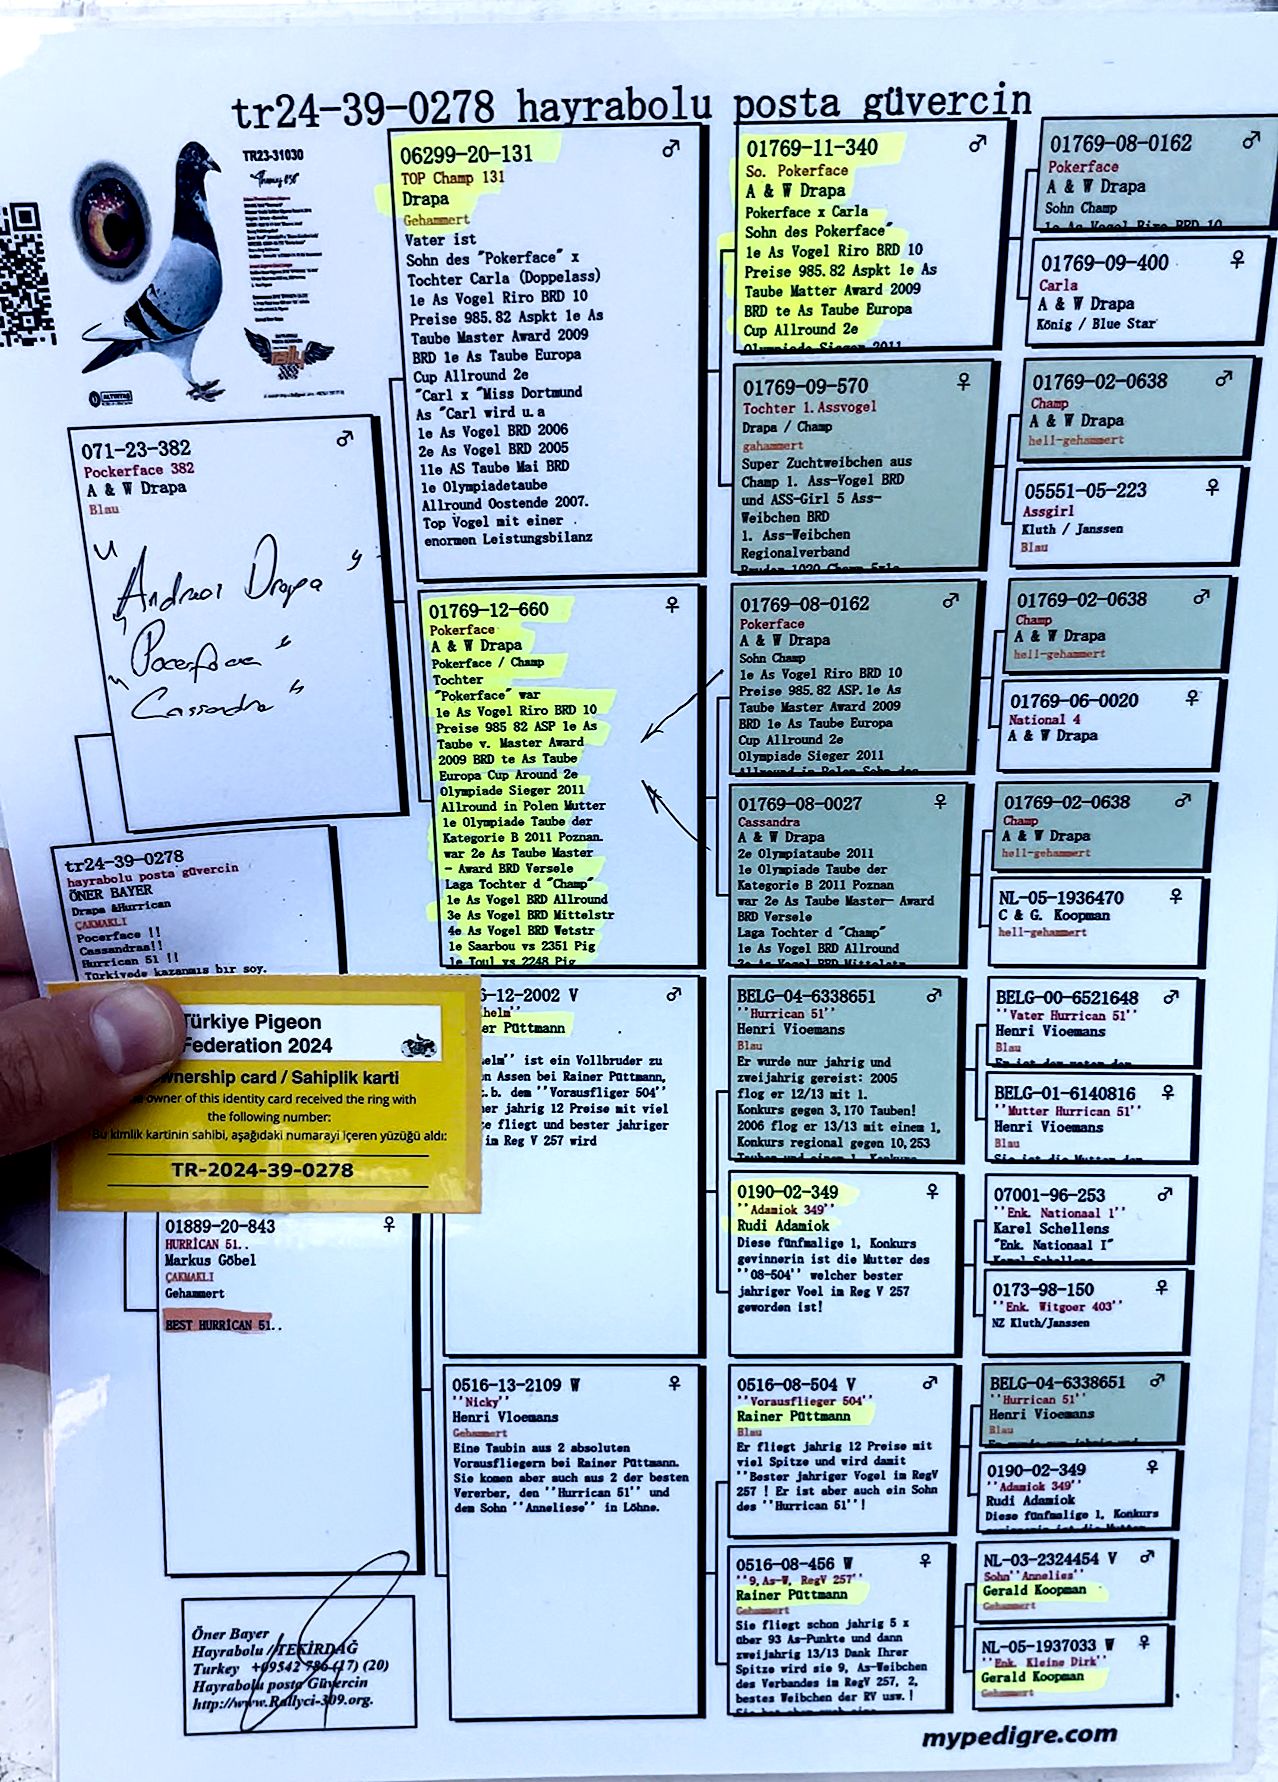 tr24-39-0278 hayrabolu posta güvercin
TR23-31030
071-23-382 ♂
Pockerface 382
A & W Drapa
Blau
"Andreas Drapa"
"Pocerface"
"Cassandra"
tr24-39-0278
hayrabolu posta güvercin
ÖNER BAYER
Drapa &Hurrican
ÇAKMAKLI
Pocerface !!
Cassandraa!!
Hurrican 51 !!
Türkiyede kazanmıs bır soy.
Türkiye Pigeon
Federation 2024
ownership card / Sahiplik karti
owner of this identity card received the ring with
the following number:
Bu kimlik kartinin sahibi, aşağıdaki numarayi içeren yüzüğü aldı:
TR-2024-39-0278
01889-20-843 ♀
HURRİCAN 51..
Markus Göbel
ÇAKMAKLI
Gehammert
BEST HURRİCAN 51..
Öner Bayer
Hayrabolu /TEKİRDAĞ
Turkey +09542 786 (17) (20)
Hayrabolu posta Güvercin
http://www.Rallyci-309.org.
06299-20-131 ♂
TOP Champ 131
Drapa
Gehammert
Vater ist
Sohn des "Pokerface" x
Tochter Carla (Doppelass)
1e As Vogel Riro BRD 10
Preise 985.82 Aspkt 1e As
Taube Master Award 2009
BRD 1e As Taube Europa
Cup Allround 2e
"Carl x "Miss Dortmund
As "Carl wird u.a
1e As Vogel BRD 2006
2e As Vogel BRD 2005
11e AS Taube Mai BRD
1e Olympiadetaube
Allround Oostende 2007.
Top Vogel mit einer .
enormen Leistungsbilanz
01769-12-660 ♀
Pokerface
A & W Drapa
Pokerface / Champ
Tochter
"Pokerface" war
1e As Vogel Riro BRD 10
Preise 985 82 ASP 1e As
Taube v. Master Award
2009 BRD te As Taube
Europa Cup Around 2e
Olympiade Sieger 2011
Allround in Polen Mutter
1e Olympiade Taube der
Kategorie B 2011 Poznan.
war 2e As Taube Master
- Award BRD Versele
Laga Tochter d "Champ"
1e As Vogel BRD Allround
3e As Vogel BRD Mittelstr
4e As Vogel BRD Wetstr
1e Saarbou vs 2351 Pig
1e Toul vs 2248 Pig
6-12-2002 V ♂
helm''
er Püttmann
elm'' ist ein Vollbruder zu
n Assen bei Rainer Püttmann,
z.b. dem ''Vorausfliger 504''
er jahrig 12 Preise mit viel
ze fliegt und bester jahriger
im Reg V 257 wird
0516-13-2109 W ♀
''Nicky''
Henri Vloemans
Gehammert
Eine Taubin aus 2 absoluten
Vorausfliegern bei Rainer Püttmann.
Sie komen aber auch aus 2 der besten
Vererber, den ''Hurrican 51'' und
dem Sohn ''Anneliese'' in Löhne.
01769-11-340 ♂
So. Pokerface
A & W Drapa
Pokerface x Carla
Sohn des Pokerface"
1e As Vogel Riro BRD 10
Preise 985.82 Aspkt 1e As
Taube Matter Award 2009
BRD te As Taube Europa
Cup Allround 2e
Olympiade Sieger 2011
01769-09-570 ♀
Tochter 1.Assvogel
Drapa / Champ
gahammert
Super Zuchtweibchen aus
Champ 1. Ass-Vogel BRD
und ASS-Girl 5 Ass-
Weibchen BRD
1. Ass-Weibchen
Regionalverband
01769-08-0162 ♂
Pokerface
A & W Drapa
Sohn Champ
1e As Vogel Riro BRD 10
Preise 985.82 ASP.1e As
Taube Master Award 2009
BRD 1e As Taube Europa
Cup Allround 2e
Olympiade Sieger 2011
Allround in Polen Sohn des
01769-08-0027 ♀
Cassandra
A & W Drapa
2e Olympiataube 2011
1e Olympiade Taube der
Kategorie B 2011 Poznan
war 2e As Taube Master- Award
BRD Versele
Laga Tochter d "Champ"
1e As Vogel BRD Allround
3e As Vogel BRD Mittelstr
BELG-04-6338651 ♂
''Hurrican 51''
Henri Vioemans
Blau
Er wurde nur jahrig und
zweijahrig gereist: 2005
flog er 12/13 mit 1.
Konkurs gegen 3,170 Tauben!
2006 flog er 13/13 mit einem 1,
Konkurs regional gegen 10,253
Tauben und einem 1. Konkurs
0190-02-349 ♀
''Adamiok 349''
Rudi Adamiok
Diese fünfmalige 1, Konkurs
gevinnerin ist die Mutter des
''08-504'' welcher bester
jahriger Voel im Reg V 257
geworden ist!
0516-08-504 V ♂
''Vorausflieger 504''
Rainer Püttmann
Blau
Er fliegt jahrig 12 Preise mit
viel Spitze und wird damit
''Bester jahriger Vogel im RegV
257 ! Er ist aber auch ein Sohn
des ''Hurrican 51''!
0516-08-456 W ♀
''9,As-W, RegV 257''
Rainer Püttmann
Gehammert
Sie fliegt schon jahrig 5 x
über 93 As-Punkte und dann
zweijahrig 13/13 Dank Ihrer
Spitze wird sie 9, As-Weibchen
des Verbandes im RegV 257, 2,
bestes Weibchen der RV usw.!
01769-08-0162 ♂
Pokerface
A & W Drapa
Sohn Champ
1e As Vogel Riro BRD 10
01769-09-400 ♀
Carla
A & W Drapa
König / Blue Star
01769-02-0638 ♂
Champ
A & W Drapa
hell-gehammert
05551-05-223 ♀
Assgirl
Kluth / Janssen
Blau
01769-02-0638 ♂
Champ
A & W Drapa
hell-gehammert
01769-06-0020 ♀
National 4
A & W Drapa
01769-02-0638 ♂
Champ
A & W Drapa
hell-gehammert
NL-05-1936470 ♀
C & G. Koopman
hell-gehammert
BELG-00-6521648 ♂
''Vater Hurrican 51''
Henri Vioemans
Blau
Er ist der vater den
BELG-01-6140816 ♀
''Mutter Hurrican 51''
Henri Vioemans
Blau
Sie ist die Mutter den
07001-96-253 ♂
''Enk. Nationaal 1''
Karel Schellens
"Enk. Nationaal I"
Karel Schellens
0173-98-150 ♀
''Enk. Witgoer 403''
NZ Kluth/Janssen
BELG-04-6338651 ♂
''Hurrican 51''
Henri Vioemans
Blau
Er wurde nur jahrig und
0190-02-349 ♀
''Adamiok 349''
Rudi Adamiok
Diese fünfmalige 1, Konkurs
gevinnerin ist die Mutter
NL-03-2324454 V ♂
Sohn''Annelies''
Gerald Koopman
Gehammert
NL-05-1937033 W ♀
''Enk. Kleine Dirk''
Gerald Koopman
Gehammert
mypedigre.com